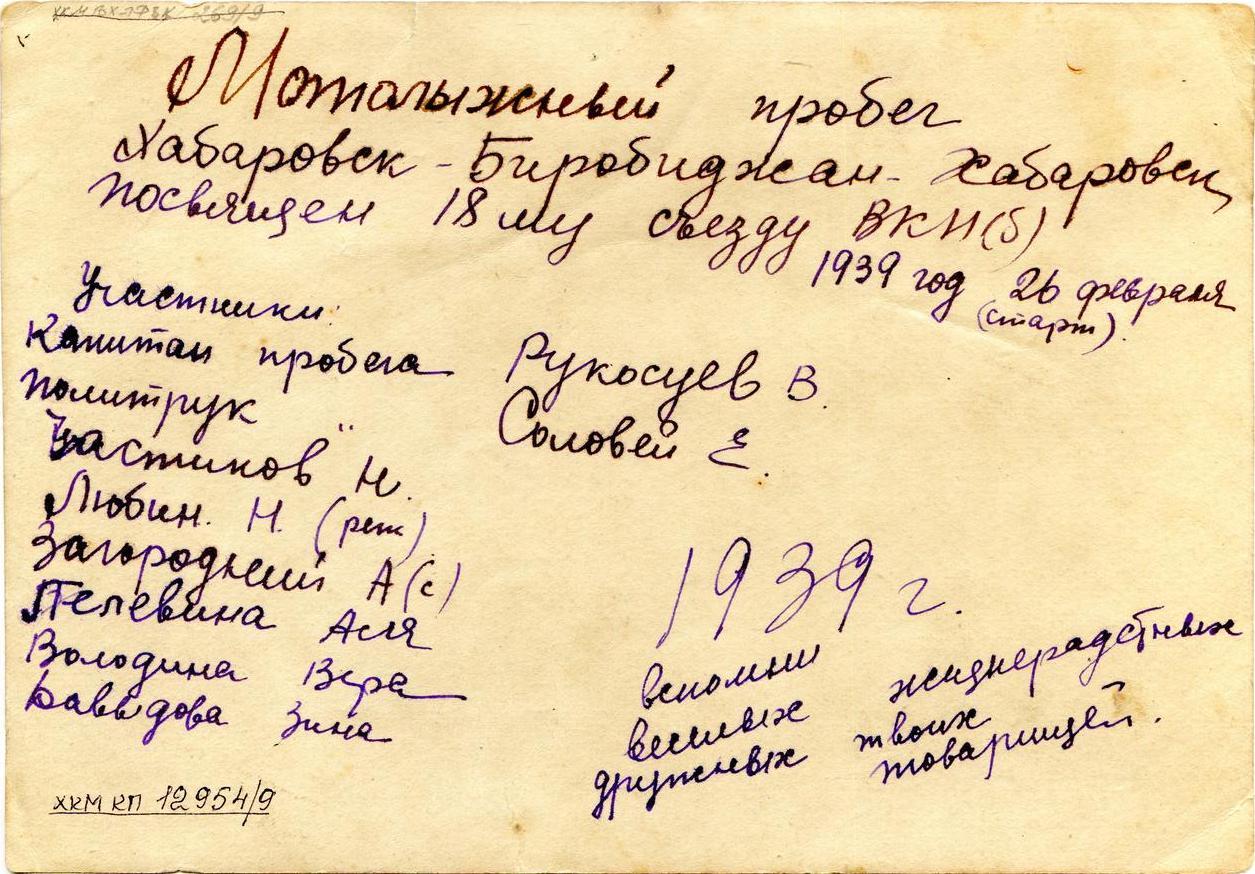 269/9
Моталыжный пробег
Хабаровск - Биробиджан - Хабаровск
Посвящен 18 му съезду ВКП(б)
1939 год 26 февраля
(старт).
Участники:
Капитан пробега Рукосуев В.
Политрук " Соловей Е.
Частиков Н.
Любин. Н. (реж)
Загородний А(с)
Пелевина Ася
Володина Вера
Давыдова Зина
1939 г.
вспомни жизнерадстных
веселых твоих
дружных товарищей.
ХКМ КП 12954/9